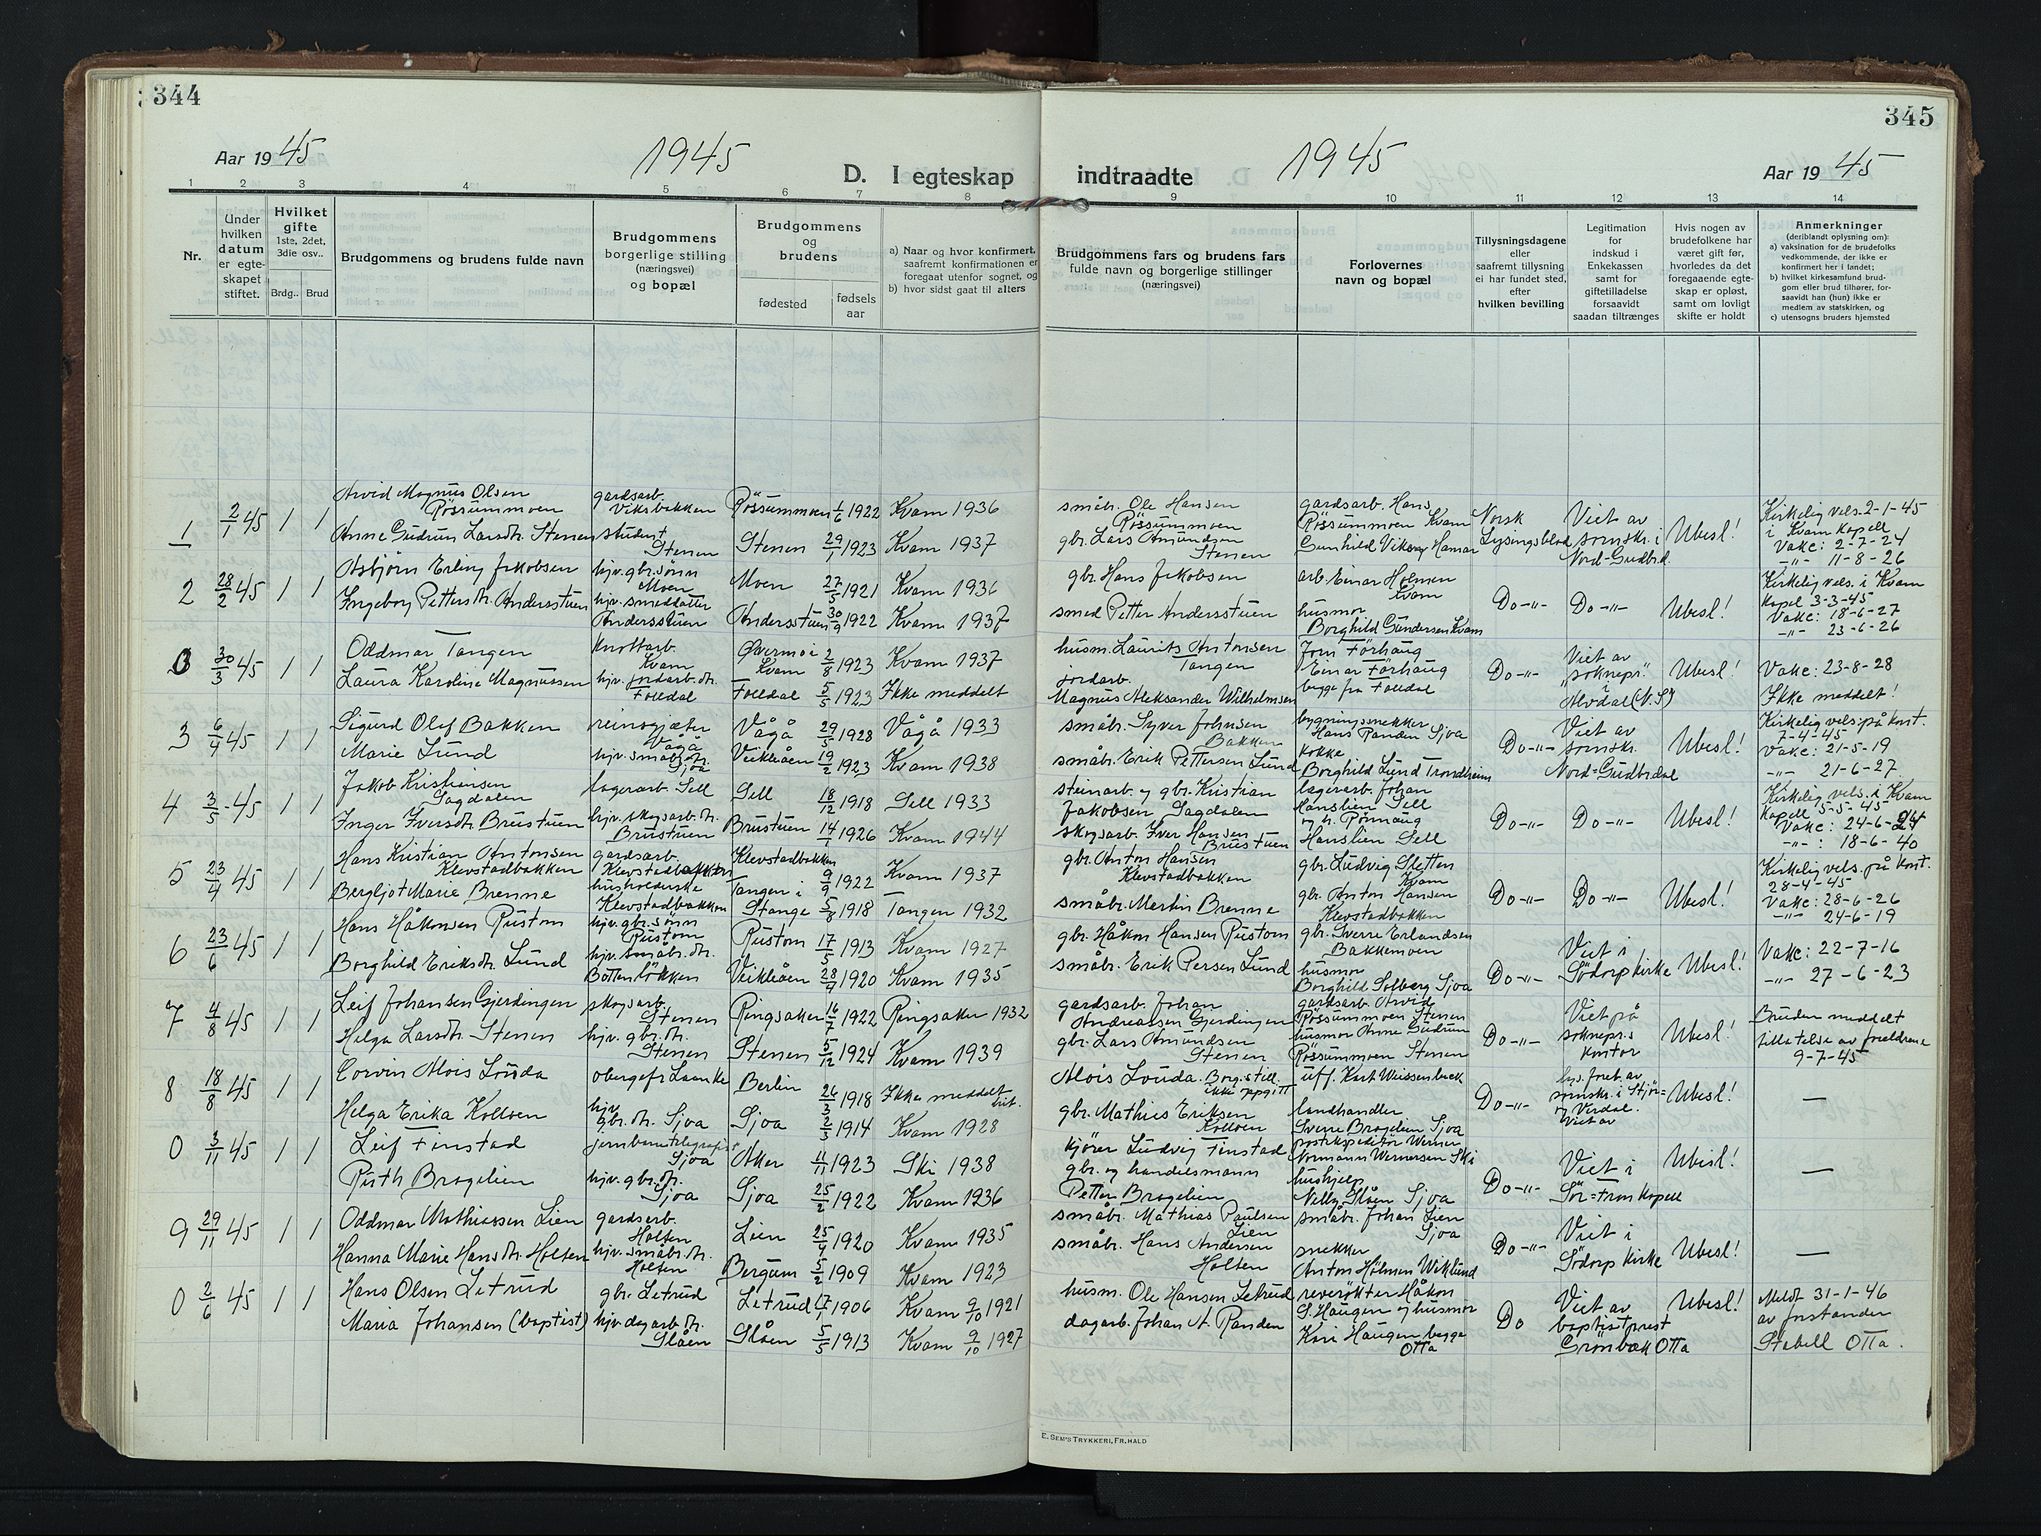 344
Aar 1945
1945
D. I egteskap
1 2 3 4 5 6 7 8
Nr.
Under hvilken datum er egteskapet stiftet.
Hvilket gifte 1ste, 2det, 3die osv..
Brdg.. Brud
Brudgommens og brudens fulde navn
Brudgommens borgerlige stilling (næringsvei) og bopæl
Brudgommens og brudens
fødested
fødsels aar
a) Naar og hvor konfirmert, saafremt konfirmationen er foregaat utenfor sognet, og
b) hvor sidst gaat til alters
1 2/1 45 1 1
Arvid Magnus Olsen Røssummoen
gardsarb. Viksbakken
Røssummoen 1/6 1922 Kvam 1936
Anne Gudrun Larsdtr. Stenen
student Stenen
Stenen 29/1 1923 Kvam 1937
2 28/2 45 1 1
Asbjørn Erling Jakobsen
hjv. gbr. sønn Moen
Moen 27/5 1921 Kvam 1936
Ingeborg Pettersdtr. Andersstuen
hjv. smeddatter Andersstuen
Andersstuen 30/9 1922 Kvam 1937
0 30/3 45 1 1
Oddmar Tangen
Knottarb. Kvam
Øvermoi Kvam 2/8 1923 Kvam 1937
Laura Karoline Magnussen
hjv. jordarb. dtr. Folldal
Folldal 5/5 1923 Ikke meddelt
3 6/4 45 1 1
Sigurd Olaf Bakken
reinsgjæter Vågå
Vågå 29/5 1928 Vågå 1933
Marie Lund
hjv. småbr. dtr. Sjoa
Veikleåen 19/2 1923 Kvam 1938
4 3/5 45 1 1
Jakob Kristiansen Sagdalen
lagerarb. Sell
Sell 18/12 1918 Sell 1933
Inger Iversdtr. Brustuen
hjv. skogsarb. dtr. Brustuen
Brustuen 14/1 1926 Kvam 1944
5 23/4 45 1 1
Hans Kristian Antonsen Klevstadbakken
gardsarb. Klevstadbakken
Klevstadbakken 9/9 1922 Kvam 1937
Bergljot Marie Brenne
husholderske Klevstadbakken
Tangen i Stange 5/8 1918 Tangen 1932
6 23/6 45 1 1
Hans Håkonsen Rustom
hjv. gbr. sønn Rustom
Rustom 17/5 1913 Kvam 1927
Borghild Eriksdtr. Lund
hjv. småbr. dtr. Botten løkken
Veikleåen 28/4 1920 Kvam 1935
7 4/8 45 1 1
Leif Johansen Gjerdingen
skogsarb. Stenen
Ringsaker 16/7 1922 Ringsaker 1932
Helga Larsdtr. Stenen
hjv. gbr. dtr. Stenen
Stenen 5/12 1924 Kvam 1939
8 18/8 45 1 1
Corvin Alois Louda
Berlin 26/3 1918 Ikke meddelt
Helga Erika Kolloen
hjv. gbr. dtr. Sjoa
Sjoa 2/3 1914 Kvam 1928
0 3/11 45 1 1
Leif Finstad
jernbanetelegrafist Sjoa
Aker 11/11 1923 Ski 1938
Ruth Bragelien
hjv. gbr. dtr. Sjoa
Sjoa 25/2 1922 Kvam 1936
9 29/11 45 1 1
Oddmar Mathiassen Lien
gardsarb. Holten
Lien 25/4 1920 Kvam 1935
Hanna Marie Hansdtr. Holten
hjv. småbr. dtr. Holten
Bergum 5/2 1909 Kvam 1923
0 2/6 45 1 1
Hans Olsen Letrud
gbr. Letrud
Letrud 17/1 1906 Kvam 9/10 1921
Maria Johansen (baptist)
hjv. dagarb. dtr. Slåen
Slåen 5/5 1913 Kvam 9/10 1927
345
indtraadte
1945
Aar 1945
9 10 11 12 13 14
Brudgommens fars og brudens fars fulde navn og borgerlige stillinger (næringsvei)
Forlovernes navn og bopæl
Tillysningsdagene eller saafremt tillysning ei har fundet sted, efter hvilken bevilling
Legitimation for indskud i Enkekassen samt for giftetilladelse forsaavidt saadan tiltrænges
Hvis nogen av brudefolkene har været gift før, hvorledes da det foregaaende egteskap er opløst, samt om lovligt skifte er holdt
Anmerkninger (deriblandt oplysning om):
a) vaksination for de brudefolks vedkommende, der ikke er konfirmert her i landet;
b) hvilket kirkesamfund brudgom eller brud tilhører, forsaavidt han (hun) ikke er medlem av statskirken, og
c) utensogns bruders hjemsted
småb. Ole Hansen Røssummoen
gbr. Lars Amundsen Stenen
gardsarb. Hans Røssummoen Kvam
Gunhild Viksøy Hamar
Norsk Lysingsblad
Viet av sorenskr. i Nord-Gudbrd.
Ubesl!
Kirkelig vels. 2-1-45 i Kvam kapell
Vakc: 2-7-24
-"- 11-8-26
gbr. Hans Jakobsen
smed Petter Andersstuen
arb. Einar Holmen Kvam
husmor Borghild Gundersen Kvam
Do -"- Do -"- Ubesl!
Kirkelig vels. i Kvam Kapel 3-3-45
Vakc: 18-6-27
-"- 23-6-26
husm. Laurits Antonsen Tangen
jordarb. Magnus Aleksander Wilhelmsen
Jon Förhaug
Einar Förhaug
begge fra Folldal
Do -"-
Viet av "soknepr." i Alvdal (N.S)
Ubesl!
Vakc: 23-8-28
Ikke meddelt!
småbr. Syver Johnsen Bakken
småbr. Erik Pettersen Lund
bygningssnekker Hans Randen Sjoa
kokke Borghild Lund Trondheim
Do -"-
Viet av sorenskr. Nord-Gudbrdal
Ubesl!
Kirkelig vels. på kont. 7-4-45
Vakc: 21-5-19
-"- 21-6-27
steinarb. og gbr. Kristian Jakobsen Sagdalen
skogsarb. Iver Hansen Brustuen
lagerarb. Johan Hanslien Sell
og h. Rønnaug Hanslien Sell
Do -"- Do -"- Ubesl!
Kirkelig vels. i Kvam Kapell 5-5-45
Vakc: 24-6-24
-"-: 18-6-40
gbr. Anton Hansen Klevstadbakken
småbr. Martin Brenne
gbr. Ludvig Sletten Kvam
gbr. Anton Hansen Klevstadbakken
Do -"- Do -"- Ubesl!
Kirkelig vels. på kont. 28-4-45
Vakc: 28-6-26
-"- 24-6-19
gbr. Håkon Hansen Rustom
småbr. Erik Persen Lund
gbr. Sverre Erlandsen Bakkemoen
husmor Borghild Solberg Sjoa
Do -"-
Viet i Södorp kirke
Ubesl!
Vakc: 22-7-16
-"- 27-6-23
gardsarb. Johan Andreassen Gjerdingen
gbr. Lars Amundsen Stenen
gardsarb. Arvid Røssummoen Stenen
husmor Anne Gudrun Røssummoen Stenen
Do -"-
Viet på soknepr.s kontor
Ubesl!
Bruden meddelt tillatelse av foreldrene 9-7-45
Alois Louda. Borg. still. ikke oppgitt
gbr. Mathies Eriksen Kolloen
uff. Kurt Weissenbeck
landhandler Sverre Bragelien Sjoa
Do -"-
lys. foret. av sorenskr. i Stjör- og Verdal. Viet av
Ubesl!
—
kjører Ludvig Finstad
gbr. og handelsmann Petter Bragelien
postekspeditør Werner Normann Wernersen Ski
hushjelp Nelly Slåen Sjoa
Do -"-
Viet i Sör-Fron kapell
Ubesl!
—
småbr. Mathias Paulsen Lien
småbr. Hans Andersen Holten
småbr. Johan Lien Sjoa
snekker Anton Holmen Wiklund
Do -"-
Viet i Södorp kirke
Ubesl!
—
husm. Ole Hansen Letrud
dagarb. Johan A. Randen
reverökter Håkon S. Haugen og husmor Kari Haugen begge Otta
Do
Viet av baptistprest Grönbæk Otta
Ubesl!
Meldt 31-1-46 av forstander Stabell Otta.
E. SEM'S TRYKKERI, FR.HALD